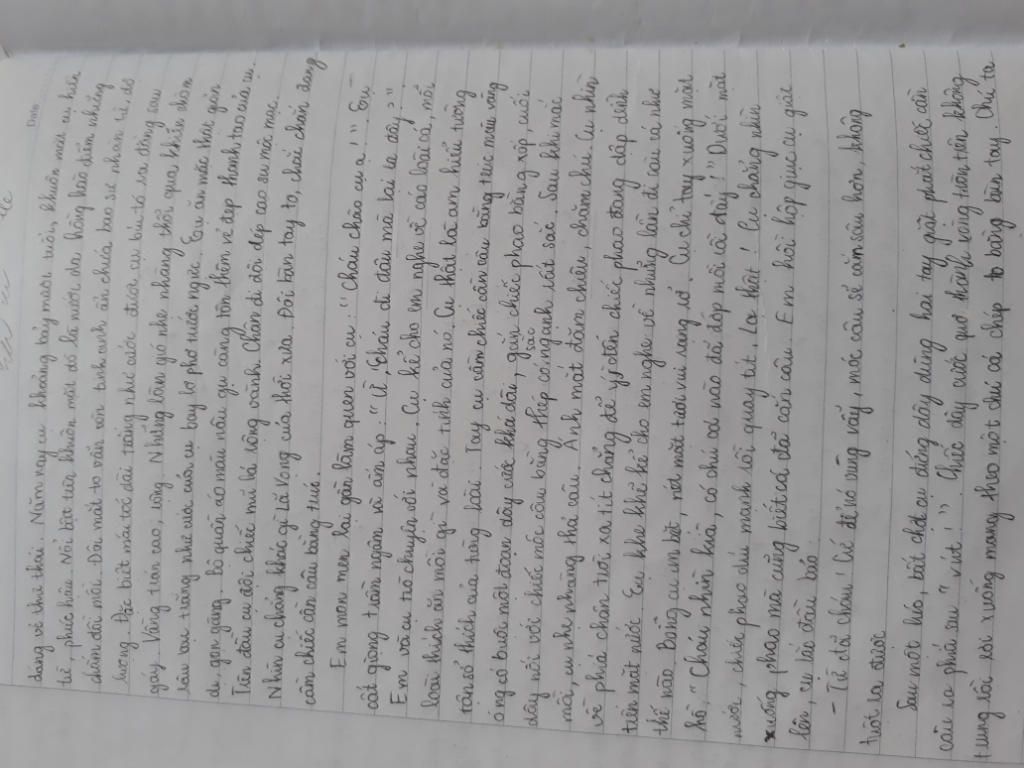 Date
dáng vẻ thư thái. Năm nay cụ khoảng bảy mươi tuổi, khuôn mặt cụ hiền
từ, phúc hậu. Nổi bật trên khuôn mặt đó là nước da hồng hào điểm những
chấm đồi mồi. Đôi mắt to vẫn còn tinh anh ẩn chứa bao sự nhân từ, đô
lượng. Đặc biệt mái tóc dài trắng như cước được cụ búi tó ra đằng sau
gáy. Vầng trán cao, rộng. Những làn gió nhẹ nhàng thổi qua, khiến chòm
râu bạc trắng như cước của cụ bay lơ phơ trước ngực. Cụ ăn mặc thật giản
dị, gọn gàng. Bộ quần áo màu nâu gụ càng tôn thêm vẻ đẹp thanh tao của cụ.
Trên đầu cụ đội chiếc mũ lá rộng vành. Chân đi đôi dép cao su mộc mạc.
Nhìn cụ chẳng khác gì Lã Vọng của thời xưa. Đôi bàn tay to, chai sần đang
cầm chiếc cần câu bằng trúc.
Em mon men lại gần làm quen với cụ: "Cháu chào cụ ạ!" Cụ
cất giọng trầm ngâm và ấm áp: "Ừ, cháu đi đâu mà lại ra đây?"
Em và cụ trò chuyện với nhau. Cụ kể cho em nghe về các loài cá, mỗi
loài thích ăn mồi gì và đặc tính của nó. Cụ thật là am hiểu tường
tận sở thích của từng loài. Tay cụ cầm chiếc cần câu bằng trúc màu vàng
óng có buộc một đoạn dây cước khá dài, gần chiếc phao bằng xốp, cuối
dây nối với chiếc móc câu bằng thép có ngạnh rất sắc. Sau khi móc
mồi, cụ nhẹ nhàng thả câu. Ánh mắt đăm chiêu, chăm chú. Cụ nhìn
về phía chân trời xa tít chẳng để ý đến chiếc phao đang dập dềnh
trên mặt nước. Cụ khe khẽ kể cho em nghe về những lần đi câu cá như
thế nào. Bỗng cụ im bặt, nét mặt tươi vui rạng rỡ. Cụ chỉ tay xuống mặt
hồ, "Cháu nhìn kìa, có chú cá nào đó đớp mồi rồi đấy!" Dưới mặt
nước, chiếc phao dìu mạnh rồi quay tít. Lạ thật! Cụ chẳng nhìn
xuống phao mà cũng biết cá đã cắn câu. Em hồi hộp giục cụ giật
lên, cụ lắc đầu bảo
- Từ từ cháu! Cứ để nó vùng vẫy, móc câu sẽ cắm sâu hơn không
trôi ra được
Sau một hồi, bất chợt cụ đứng dậy dùng hai tay giật phắt chiếc cần
câu ra phía sau "vút!" Chiếc dây cước quơ thành vòng trên không
trung rồi rơi xuống mang theo một chú cá chép to bằng bàn tay. Chú ta